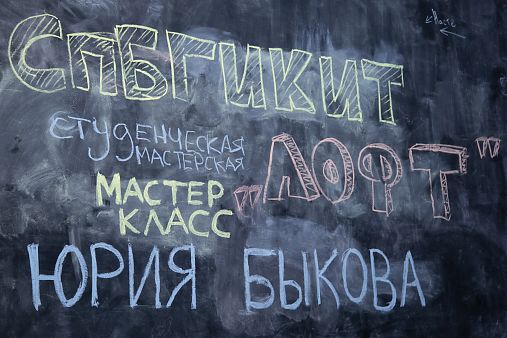 СПБГИКИТ
СТУДЕНЧЕСКАЯ
МАСТЕРСКАЯ
"ЛОФТ"
МАСТЕР
КЛАСС
ЮРИЯ БЫКОВА